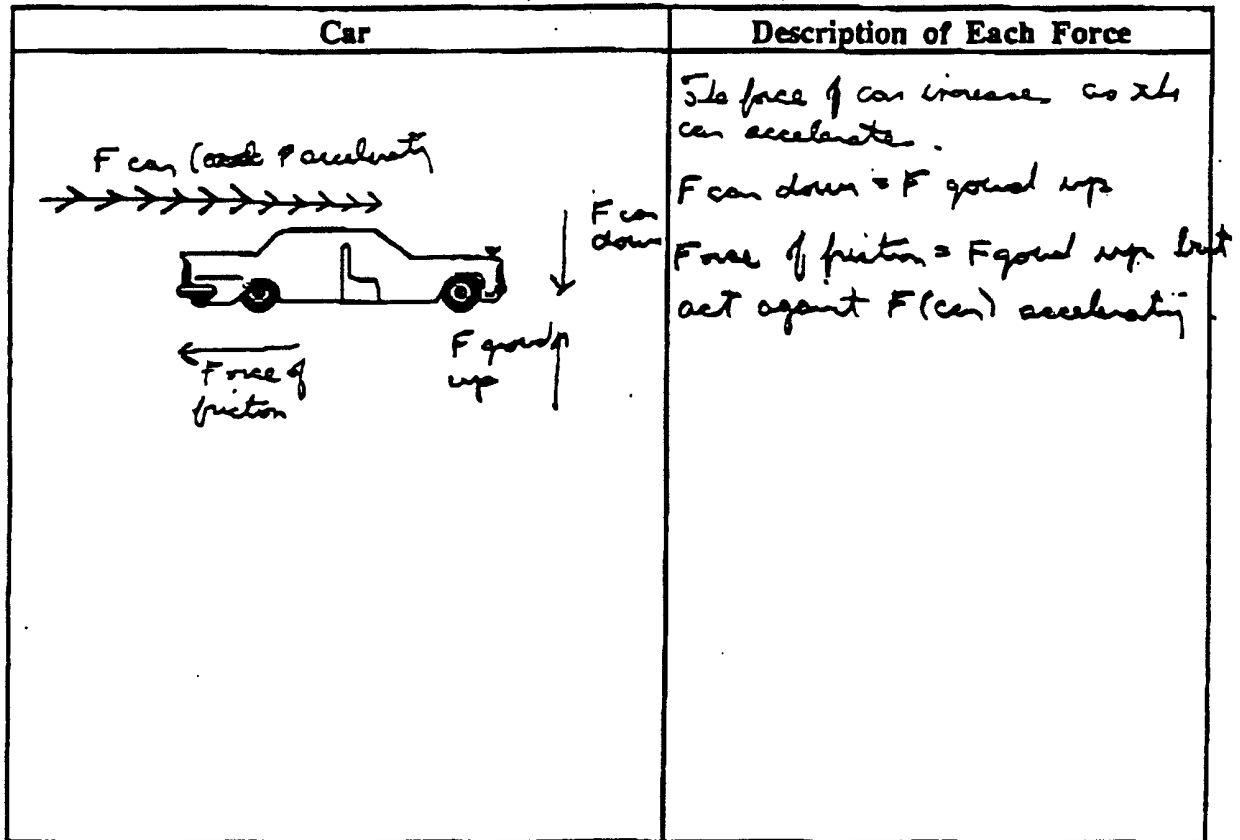 Car
Description of Each Force
F car ( accelerating
F car
down
Force of
friction
F ground
up
The force of car increases as the
car accelerate.
F car down = F gound up
Force of friction = F gound up but
act against F (car) accelerating.